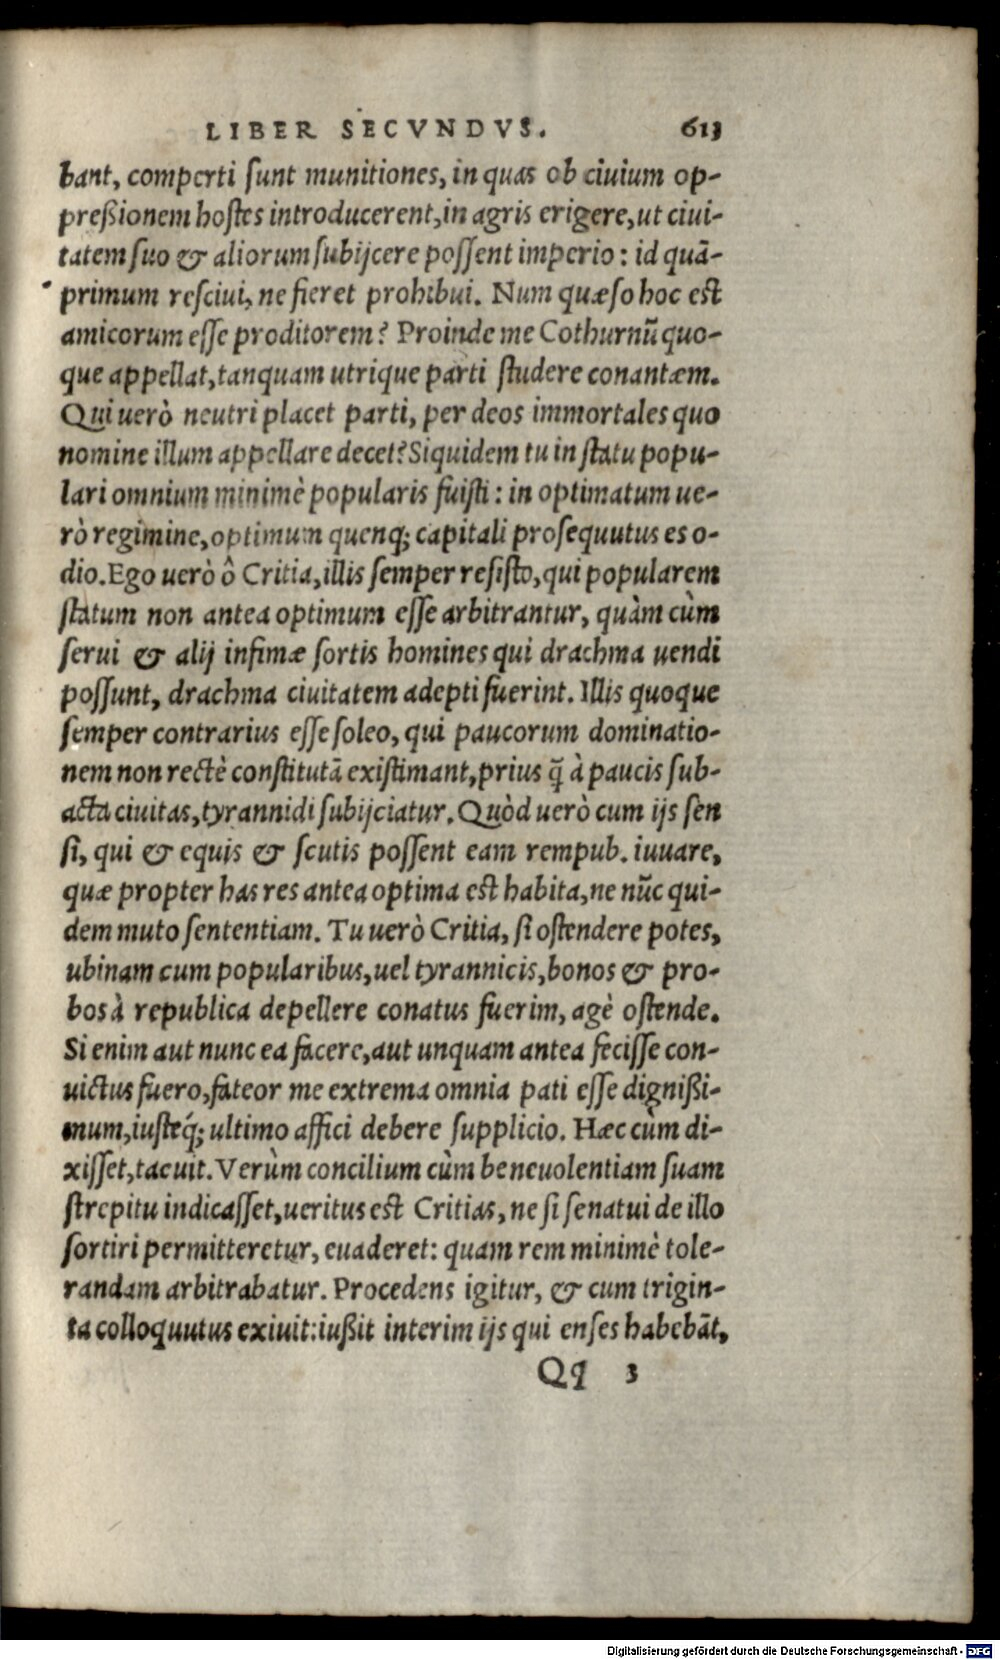 LIBER SECVNDVS. 613
bant, comperti sunt munitiones, in quas ob ciuium op-
preßionem hostes introducerent, in agris erigere, ut ciui-
tatem suo & aliorum subijcere possent imperio: id quā-
primum resciui, ne fieret prohibui. Num quæso hoc est
amicorum esse proditorem? Proinde me Cothurnū quo-
que appellat, tanquam utrique parti studere conantæm.
Qui uerò neutri placet parti, per deos immortales quo
nomine illum appellare decet? Siquidem tu in statu popu-
lari omnium minimè popularis fuisti: in optimatum ue-
rò regimine, optimum quenq; capitali prosequutus es o-
dio. Ego uerò ô Critia, illis semper resisto, qui popularem
statum non antea optimum esse arbitrantur, quàm cùm
serui & alij infimæ sortis homines qui drachma uendi
possunt, drachma ciuitatem adepti fuerint. Illis quoque
semper contrarius esse soleo, qui paucorum dominatio-
nem non rectè constitutā existimant, prius q̃ à paucis sub-
acta ciuitas, tyrannidi subijciatur. Quòd uerò cum ijs sen
si, qui & equis & scutis possent eam rempub. iuuare,
quæ propter has res antea optima est habita, ne nūc qui-
dem muto sententiam. Tu uerò Critia, si ostendere potes,
ubinam cum popularibus, uel tyrannicis, bonos & pro-
bos à republica depellere conatus fuerim, agè ostende.
Si enim aut nunc ea facere, aut unquam antea fecisse con-
uictus fuero, fateor me extrema omnia pati esse dignißi-
mum, iusteq́; ultimo affici debere supplicio. Hæc cùm di-
xisset, tacuit. Verùm concilium cùm beneuolentiam suam
strepitu indicasset, ueritus est Critias, ne si senatui de illo
sortiri permitteretur, euaderet: quam rem minimè tole-
randam arbitrabatur. Procedens igitur, & cum trigin-
ta colloquutus exiuit: iußit interim ijs qui enses habebāt,
Qq 3
Digitalisierung gefördert durch die Deutsche Forschungsgemeinschaft - DFG